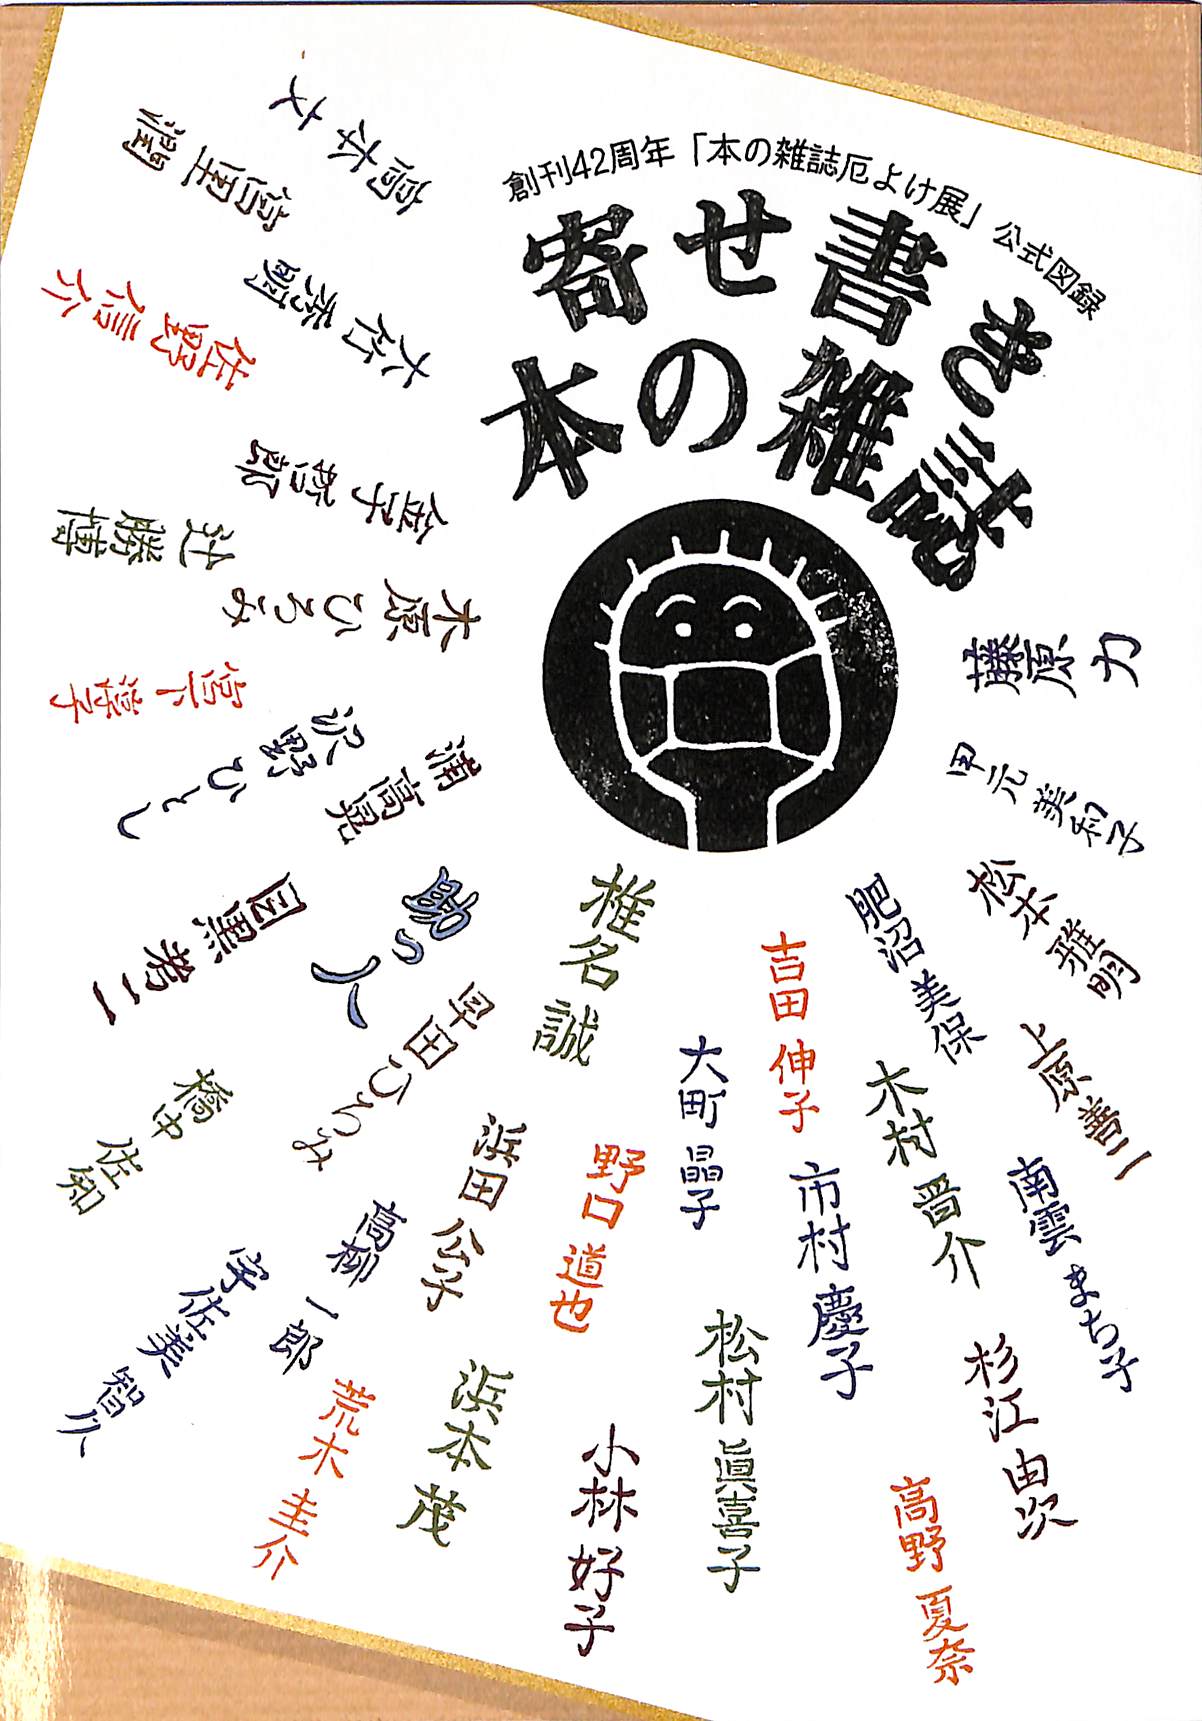 創刊42周年「本の雑誌厄よけ展」公式図録
寄せ書き
本の雑誌
藤原力
甲元美和子
松本雅明
上原善二
南雲まち子
肥沼美保
木村晋介
杉江由次
高野夏奈
吉田伸子
市村慶子
大町晶子
松村眞喜子
椎名誠
野口道也
小林好子
浜田公子
浜本茂
助っ人
早田ひろみ
高柳一郎
荒木圭介
宇佐美智久
橋中佐知
目黒考二
浦高晃
沢野ひとし
宮下淳子
木原ひろみ
辻勝博
金子哲郎
佐野信介
大竹秀明
宮里潤
高本文